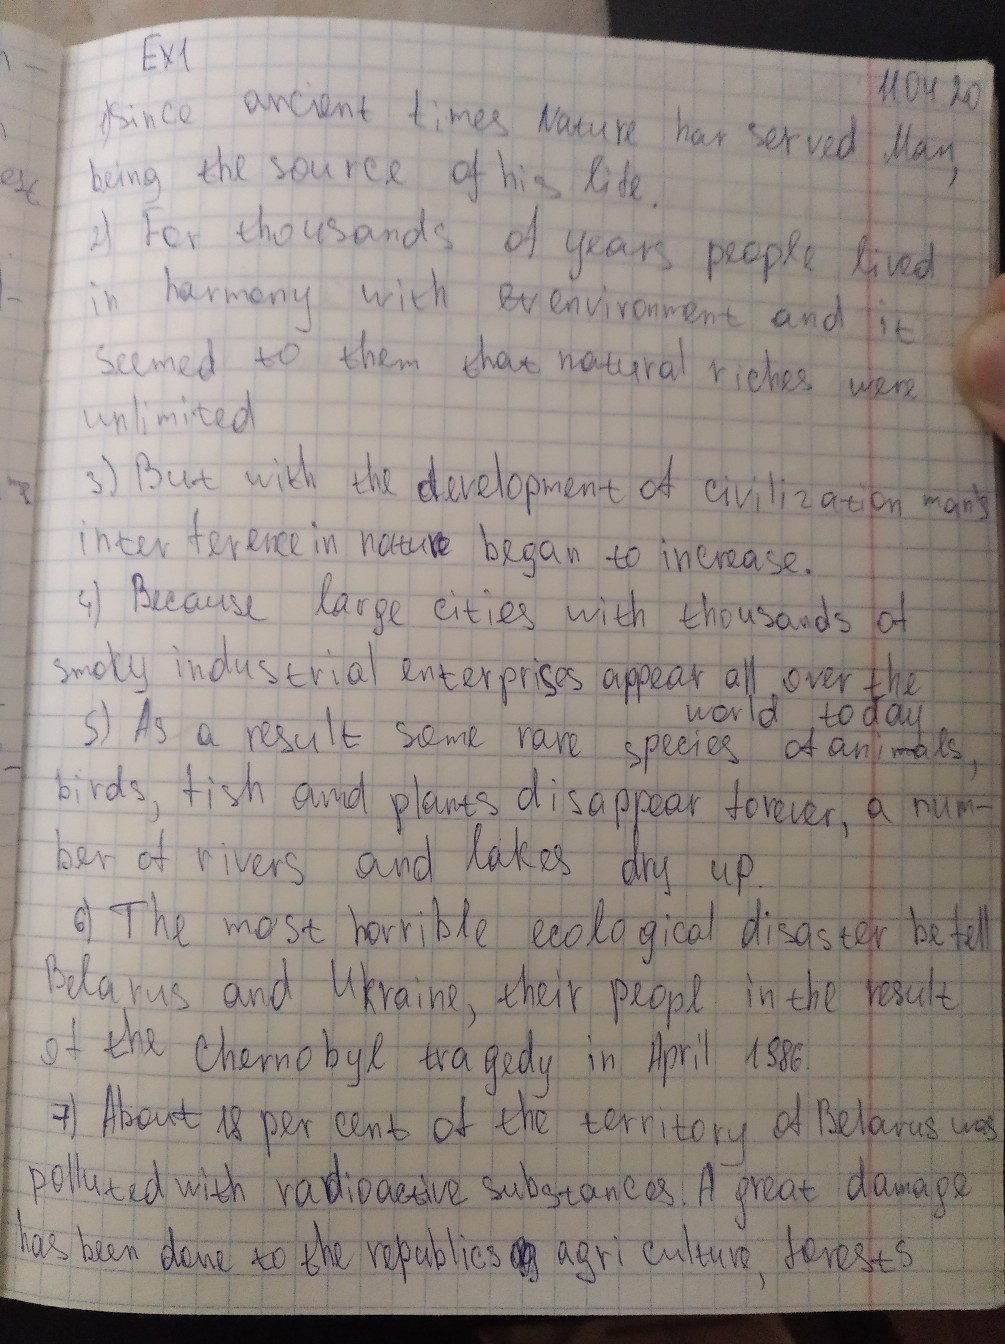 Ex1
11.04.20
1) Since ancient times Nature has served Man,
being the source of his life.
2) For thousands of years people lived
in harmony with environment and it
seemed to them that natural riches were
unlimited
3) But with the development of civilization man's
inter ference in nature began to increase.
4) Because large cities with thousands of
smoky industrial enterprises appear all over the
world today
5) As a result some rare species of animals,
birds, fish and plants disappear forever, a num-
ber of rivers and lakes dry up.
6) The most horrible ecological disaster befell
Belarus and Ukraine, their peopl in the result
of the Chernobyl tragedy in April 1986.
7) About 18 per cent of the territory of Belarus was
polluted with radioactive substances. A great damage
has been done to the republics agri culture, forests